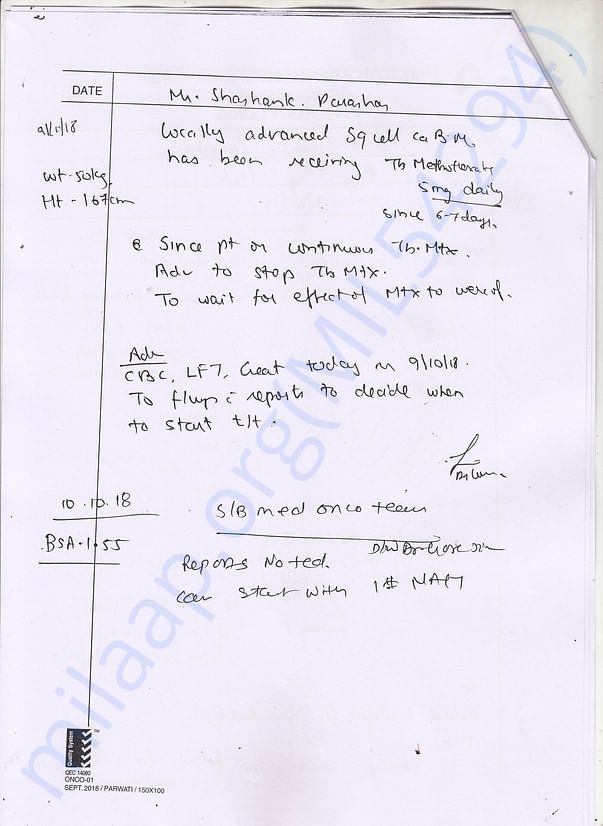 DATE
Mr. Shashank. Parashar
9/10/18
Locally advanced Sq cell ca B.M.
has been receiving Tb Methotrexate
5mg daily
since 6-7days,
wt-50kg,
Ht - 167cm
Since pt on continuous Tb. Mtx.
Adv to stop Tb Mtx.
To wait for effect of Mtx to
Adv
CBC, LFT, Creat today 9/10/18.
To f/up c reports to decide when
to start t/t.
10.10.18
S/B med onco team
BSA-1.55
D/W Dr
Reports Noted.
can start with 1st NACT
milaap.org(MIL54294)
Quality System
TM
QEC 14080
ONCO-01
SEPT. 2018 / PARWATI / 150X100